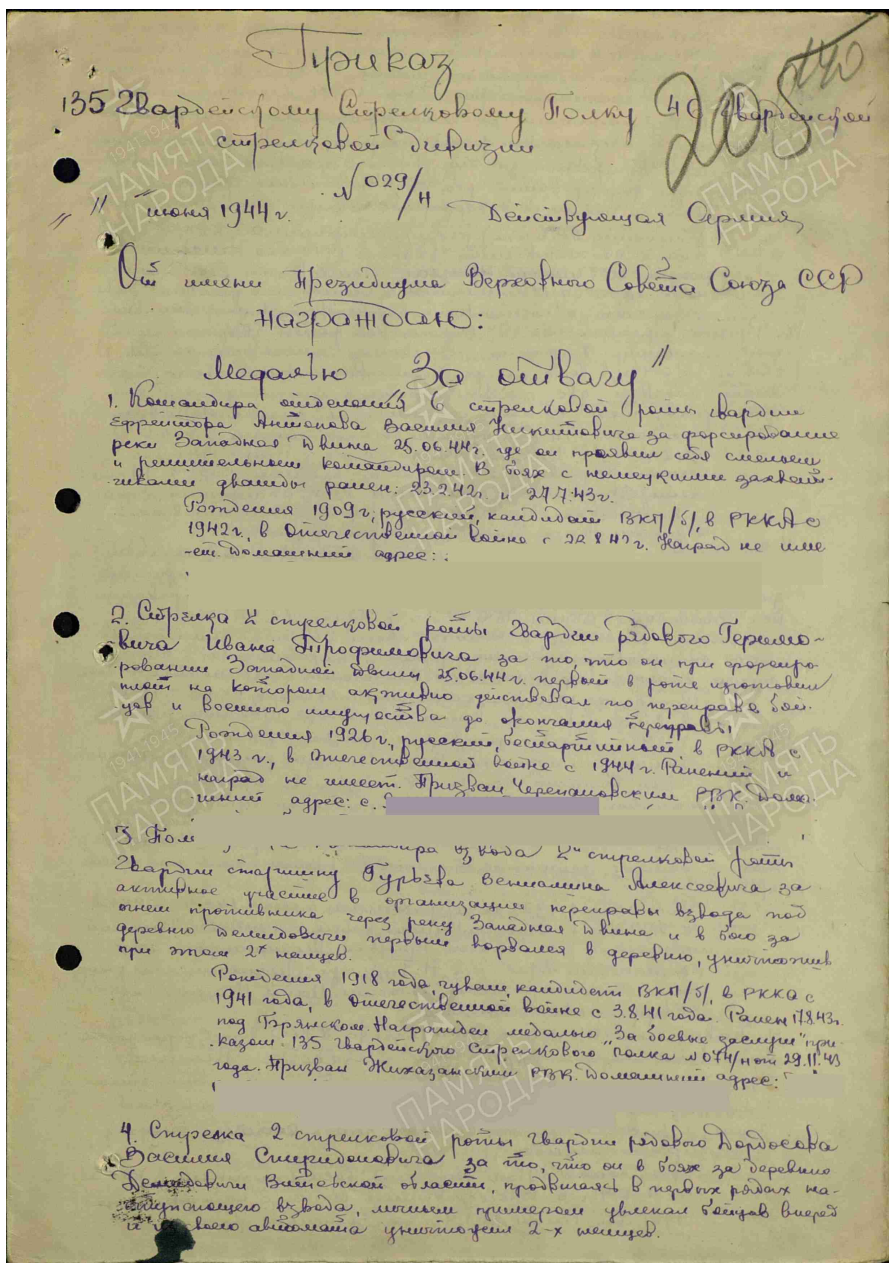 Приказ
135 Гвардейскому Стрелковому Полку 40 Гвардейской
стрелковой дивизии
205
" " июня 1944 г. N 029/н Действующая Армия
От имени Президиума Верховного Совета Союза ССР
награждаю:
Медалью "За отвагу"
1. Командира отделения 6 стрелковой роты гвардии
ефрейтора Антонова Василия Никитовича за форсирование
реки Западная Двина 25.06.44г. где он проявил себя смелым
и решительным командиром. В боях с немецкими захват-
чиками дважды ранен: 23.2.42г. и 27.7.43г.
Рождения 1909 г, русский, кандидат ВКП/б/, в РККА с
1942г., в Отечественной войне с г. Наград не име
-ет. Домашний адрес:
2. Стрелка стрелковой роты Гвардии рядового
Ивана Трофимовича за то, что он при форсиро-
вании Западной Двины 25.06.44г. первый в роте изготовил
плот на котором активно действовал по переправе бой-
цов и военного имущества до окончания переправы
Рождения 1926г., русский, беспартийный, в РККА с
1943 г., в Отечественной войне с 1944 г. Ранений и
наград не имеет. Призван Черепановским РВК. Дома-
шний адрес: с.
3 Пом
взвода стрелковой роты
Гвардии старшину Гурьева Вениамина Алексеевича за
активное участие в организации переправы взвода под
огнем противника через реку Западная Двина и в бою за
деревню Демидовичи первым ворвался в деревню, уничтожив
при этом 2х немцев.
Рождения 1918 года, чуваш, кандидат ВКП/б/, в РККА с
1941 года, в Отечественной войне с 3.8.41 года. Ранен 17.8.43г.
под Брянском. Награжден медалью "За боевые заслуги" при-
казом 135 Гвардейского Стрелкового Полка N 074/н от 29.11.43
года. Призван РВК. Домашний адрес:
4. Стрелка 2 стрелковой роты Гвардии рядового
Василия Спиридоновича за то, что он в боях за деревню
Демидовичи Витебской области, продвигаясь в первых рядах на-
ступающего взвода, личным примером увлекал бойцов вперед
и из своего автомата уничтожил 2-х немцев.
ПАМЯТЬ НАРОДА